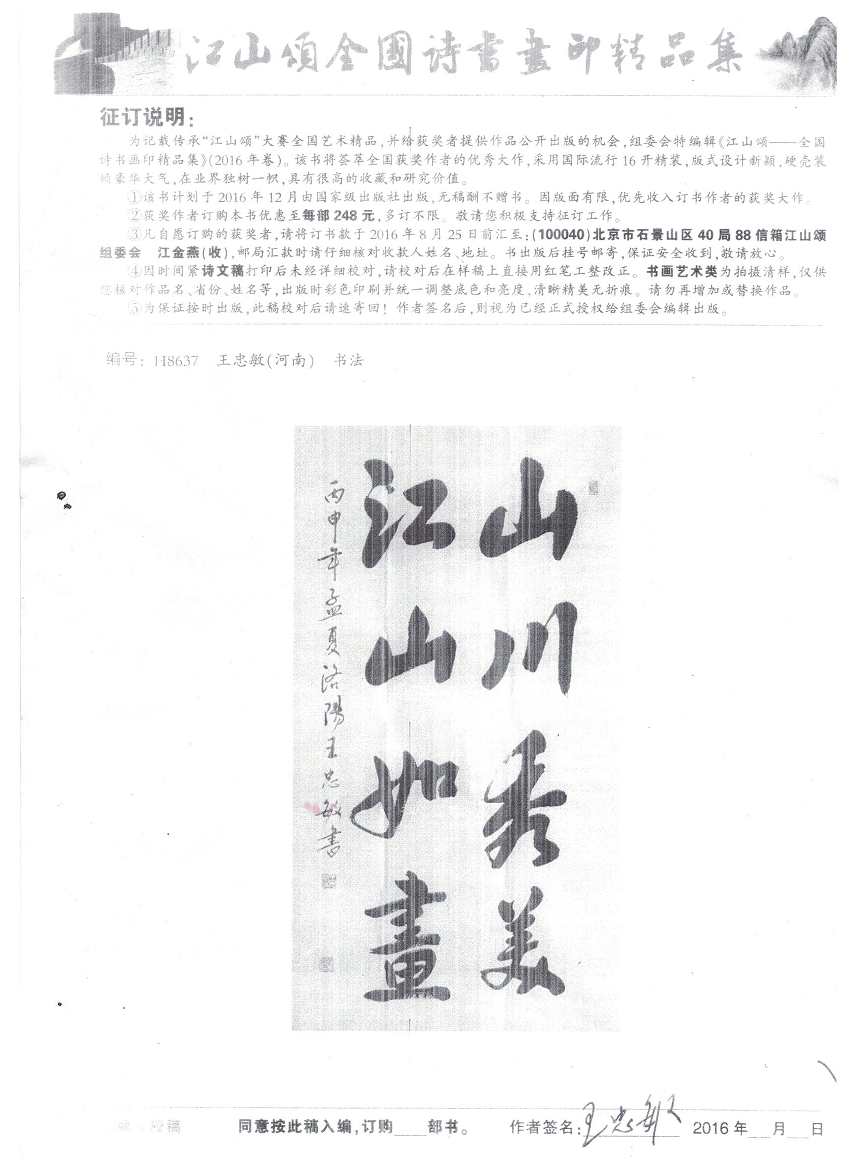 江山颂全國诗書畫印精品集
征订说明：
为记载传承“江山颂”大赛全国艺术精品，并给获奖者提供作品公开出版的机会，组委会特编辑《江山颂——全国
诗书画印精品集》(2016 年卷)。该书将荟萃全国获奖作者的优秀大作，采用国际流行 16 开精装，版式设计新颖，硬壳装
帧豪华大气，在业界独树一帜，具有很高的收藏和研究价值。
①该书计划于 2016 年 12 月由国家级出版社出版，无稿酬不赠书。因版面有限，优先收入订书作者的获奖大作。
②获奖作者订购本书优惠至每部 248 元，多订不限。敬请您积极支持征订工作。
③凡自愿订购的获奖者，请将订书款于 2016 年 8 月 25 日前汇至：(100040)北京市石景山区 40 局 88 信箱江山颂
组委会 江金燕(收)，邮局汇款时请仔细核对收款人姓名、地址。书出版后挂号邮寄，保证安全收到，敬请放心。
④因时间紧诗文稿打印后未经详细校对，请校对后在样稿上直接用红笔工整改正。书画艺术类为拍摄清样，仅供
您核对作品名、省份、姓名等，出版时彩色印刷并统一调整底色和亮度，清晰精美无折痕。请勿再增加或替换作品。
⑤为保证按时出版，此稿校对后请速寄回！作者签名后，则视为已经正式授权给组委会编辑出版。
编号：H8637 王忠敏(河南) 书法
山川秀美
江山如畫
丙申年孟夏洛陽王忠敏書
同意按此稿入编，订购____部书。 作者签名：王忠敏 2016 年__月__日